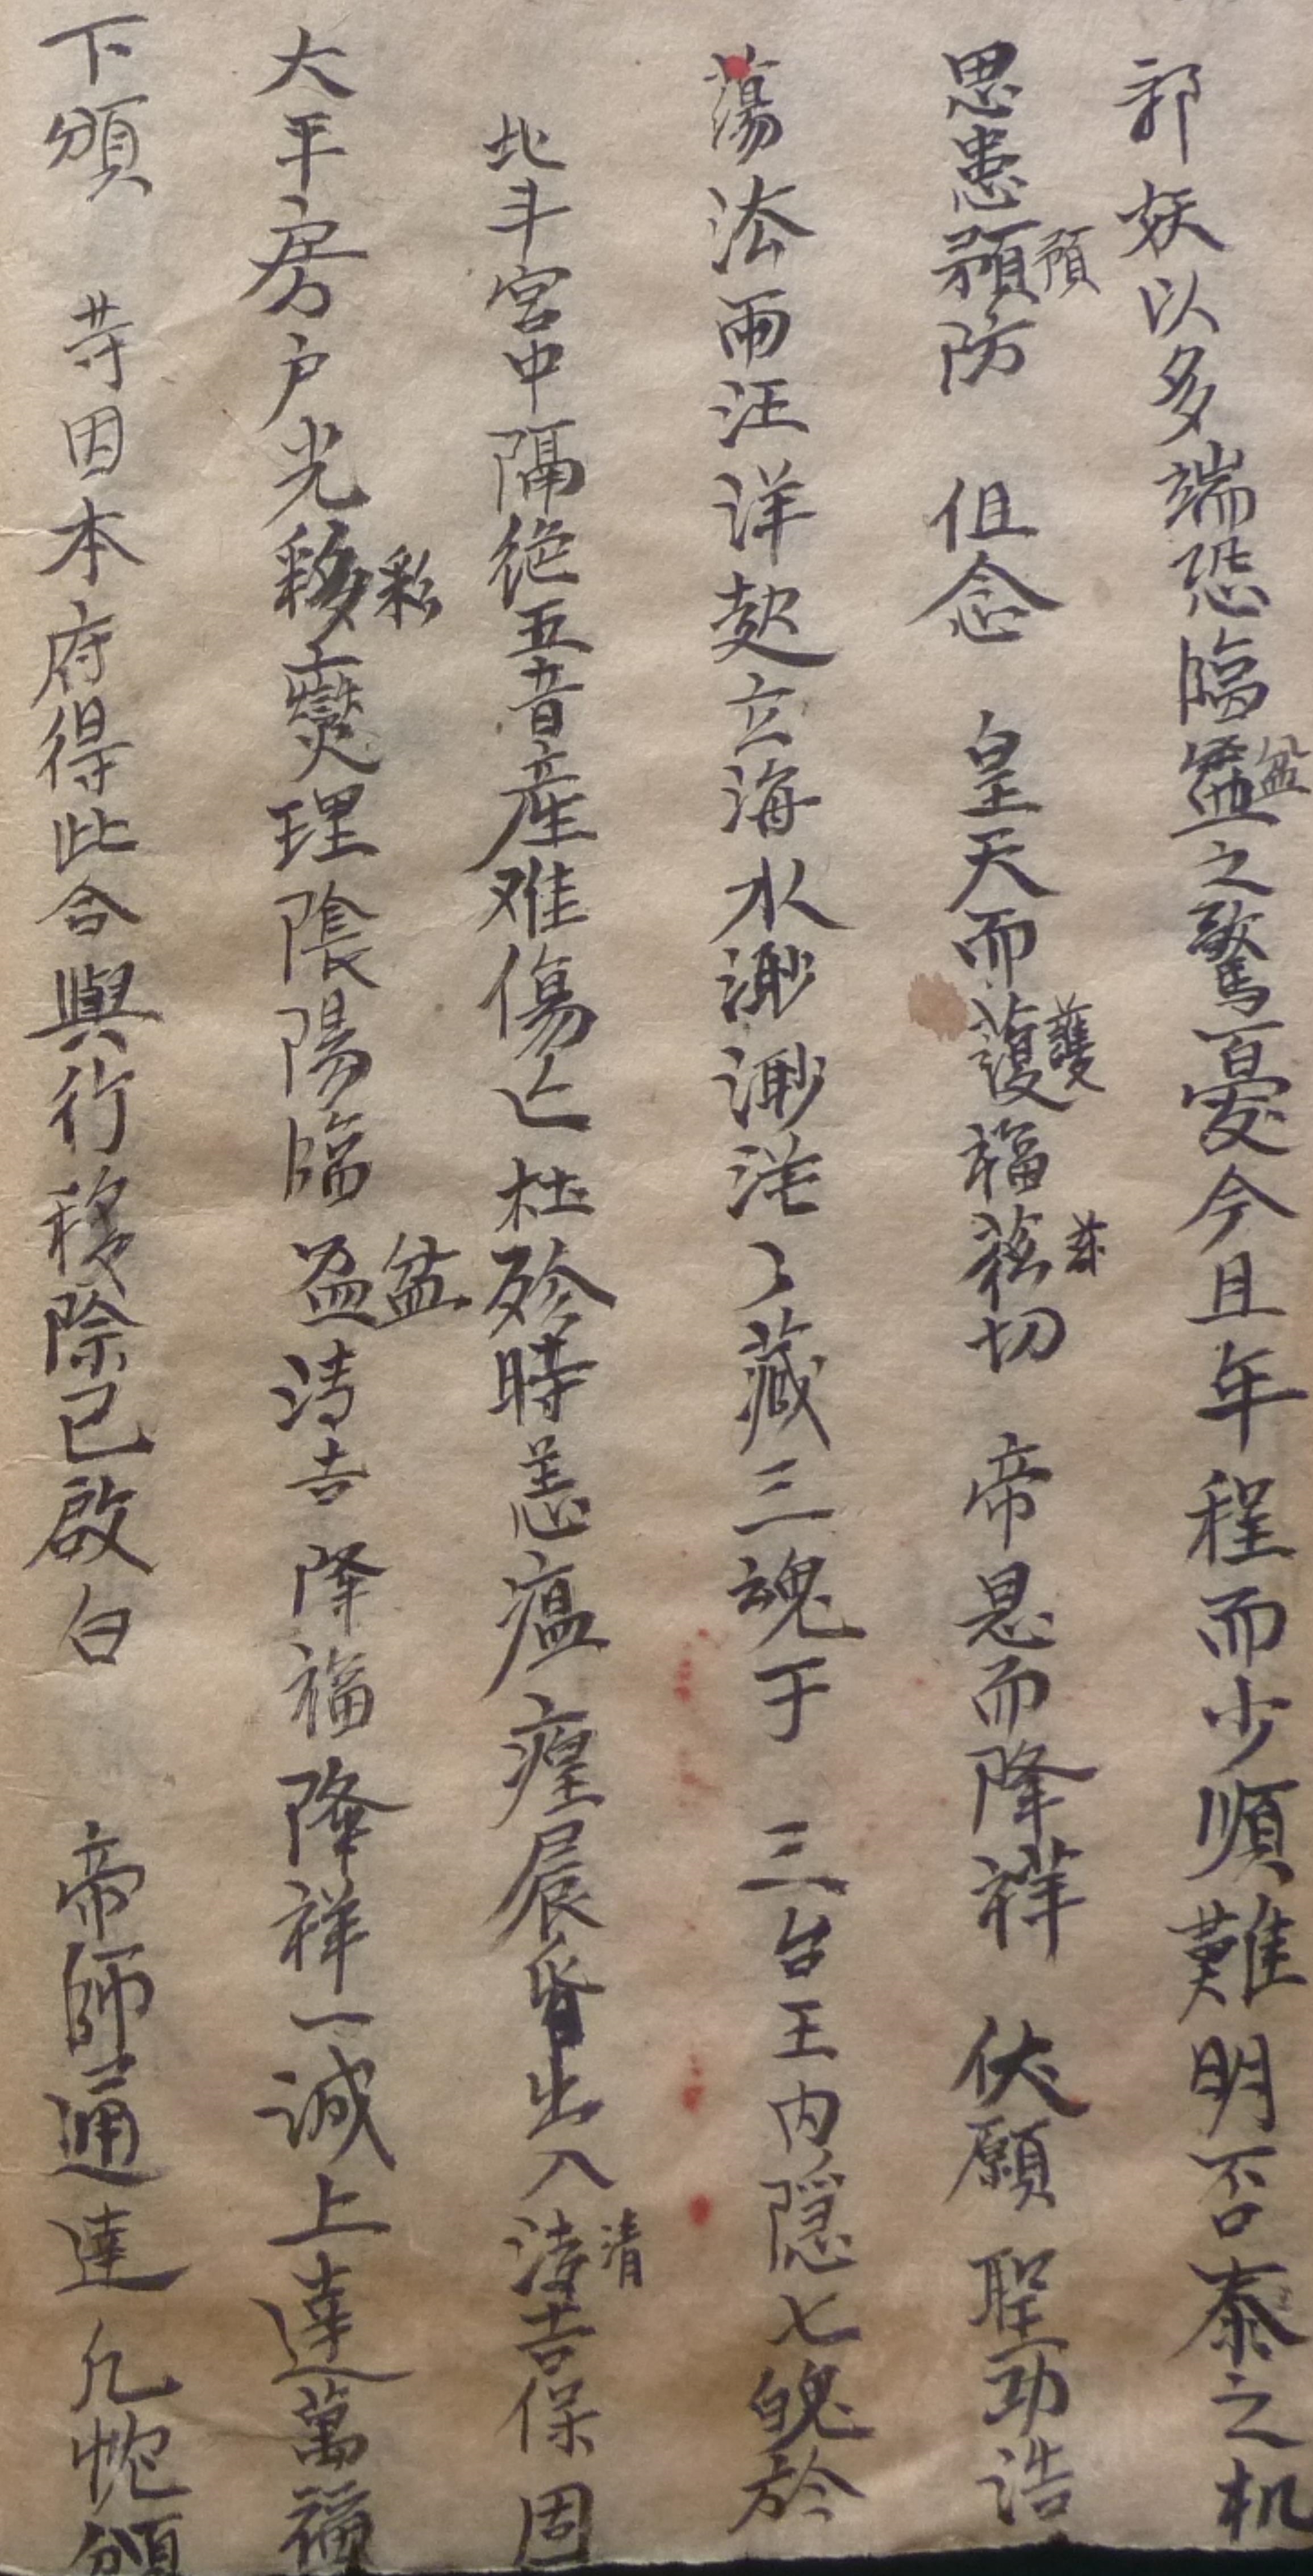 邪妖以多端恐臨盆之驚憂今且年程而少順難明否泰之机
思患預防 但念 皇天而護福茲切 帝恩而降祥 伏願 聖功浩
蕩法雨汪洋 立海水渺渺茫々藏三魂于 三台王內隱七魄於
北斗宮中隔絕五音產难傷亡杜殄時恙瘟瘟晨昏出入清吉保固
大平房户光彩燮理陰陽臨盆清吉降福降祥一誠上達萬福
下頒 等因本府得此合與行移除已啟白 帝師通達 凡 頒